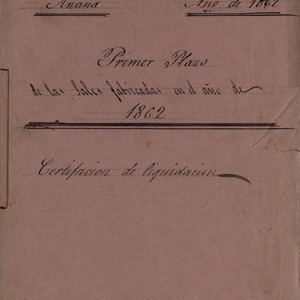 Añana Año de 1862
Primer Plazo
de las Sales fabricadas en el año de
1862
Certificacion de liquidacion